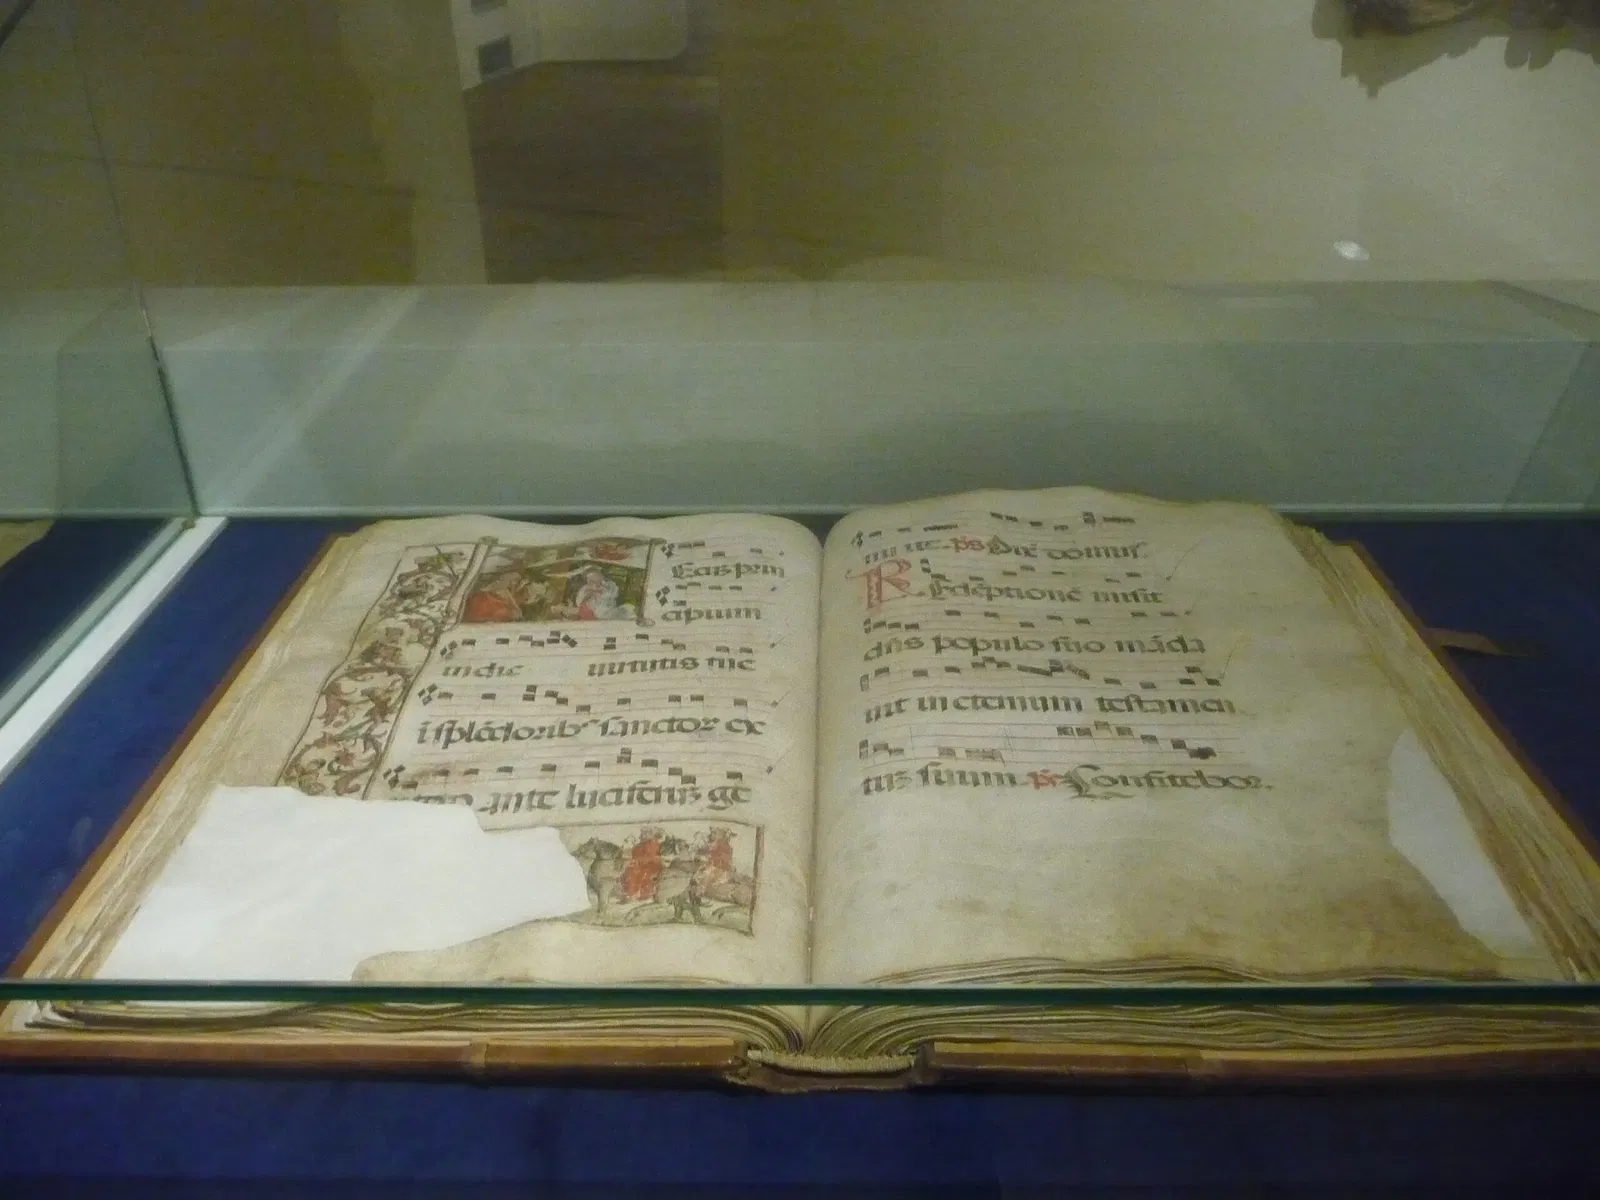 Ecuʒ prin
cipium
in die uirtutis tue
ī splēdorib' sanctor ex
utero ante luciferuʒ ge
nui te. ps Dix̄ domin'.
Redēptionē misit
dn̄s populo suo māda
uit in eternum testamen
tuʒ suum. ps Confitebor.